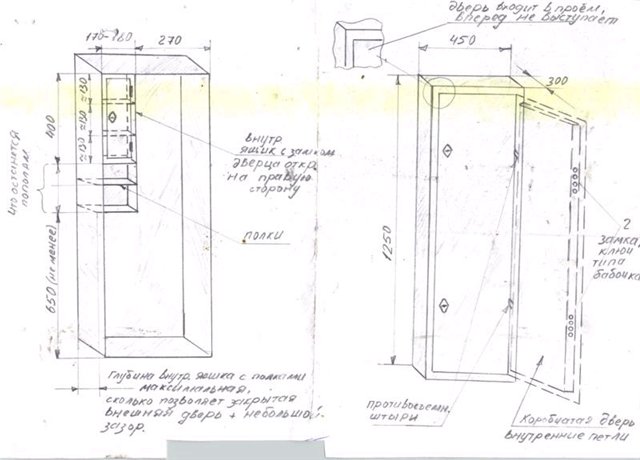 дверь входит в проём,
вперед не выступает
170-180
270
450
300
≈130
≈130
≈130
400
внутр.
ящик с замком
дверца откр.
на правую
сторону
что останется
пополам
полки
650 (не менее)
1250
2
замка,
ключ
типа
бабочка
глубина внутр. ящика с полками
максимальная,
сколько позволяет закрытая
внешняя дверь + небольшой
зазор.
противосъемн.
штыры
Коробчатая дверь
внутренние петли